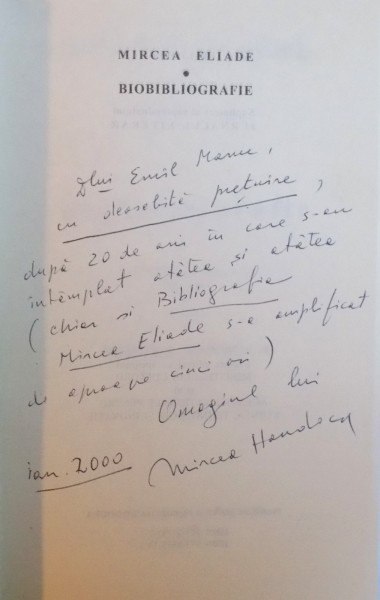 MIRCEA ELIADE
•
BIOBIBLIOGRAFIE
Dlui Emil Manu,
cu deosebită prețuire,
după 20 de ani în care s-au
întâmplat atâtea și atâtea
(chiar și Bibliografia
Mircea Eliade s-a amplificat
de aproape cinci ori)
Omagiul lui
ian. 2000 Mircea Handoca